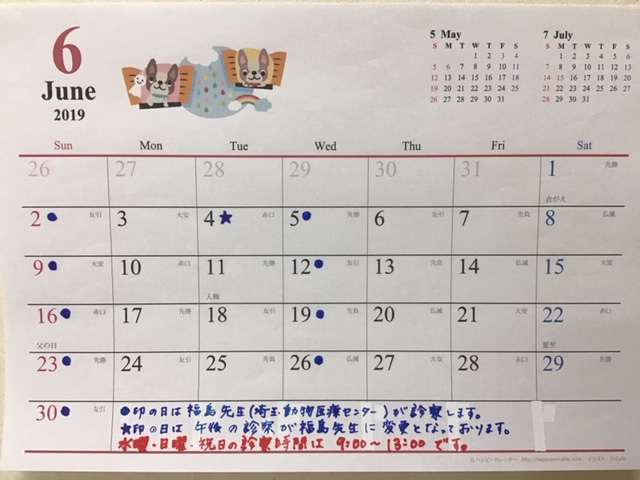 6
June
2019
5 May
S M T W T F S
1 2 3 4
5 6 7 8 9 10 11
12 13 14 15 16 17 18
19 20 21 22 23 24 25
26 27 28 29 30 31
7 July
S M T W T F S
1 2 3 4 5 6
7 8 9 10 11 12 13
14 15 16 17 18 19 20
21 22 23 24 25 26 27
28 29 30 31
Sun Mon Tue Wed Thu Fri Sat
26 27 28 29 30 31 1 先勝
衣がえ
2 ● 友引 3 大安 4 ★ 赤口 5 ● 先勝 6 友引 7 先負 8 仏滅
9 ● 大安 10 赤口 11 先勝 12 ● 友引 13 先負 14 仏滅 15 大安
入梅
16 ● 赤口 17 先勝 18 友引 19 ● 先負 20 仏滅 21 大安 22 赤口
父の日 夏至
23 ● 先勝 24 友引 25 先負 26 ● 仏滅 27 大安 28 赤口 29 先勝
30 ● 友引
●印の日は福島先生(埼玉動物医療センター)が診察します。
★印の日は 午後の診察が福島先生に変更となっております。
水曜・日曜・祝日の診察時間は 9:00〜13:00 です。
© ハッピーカレンダー